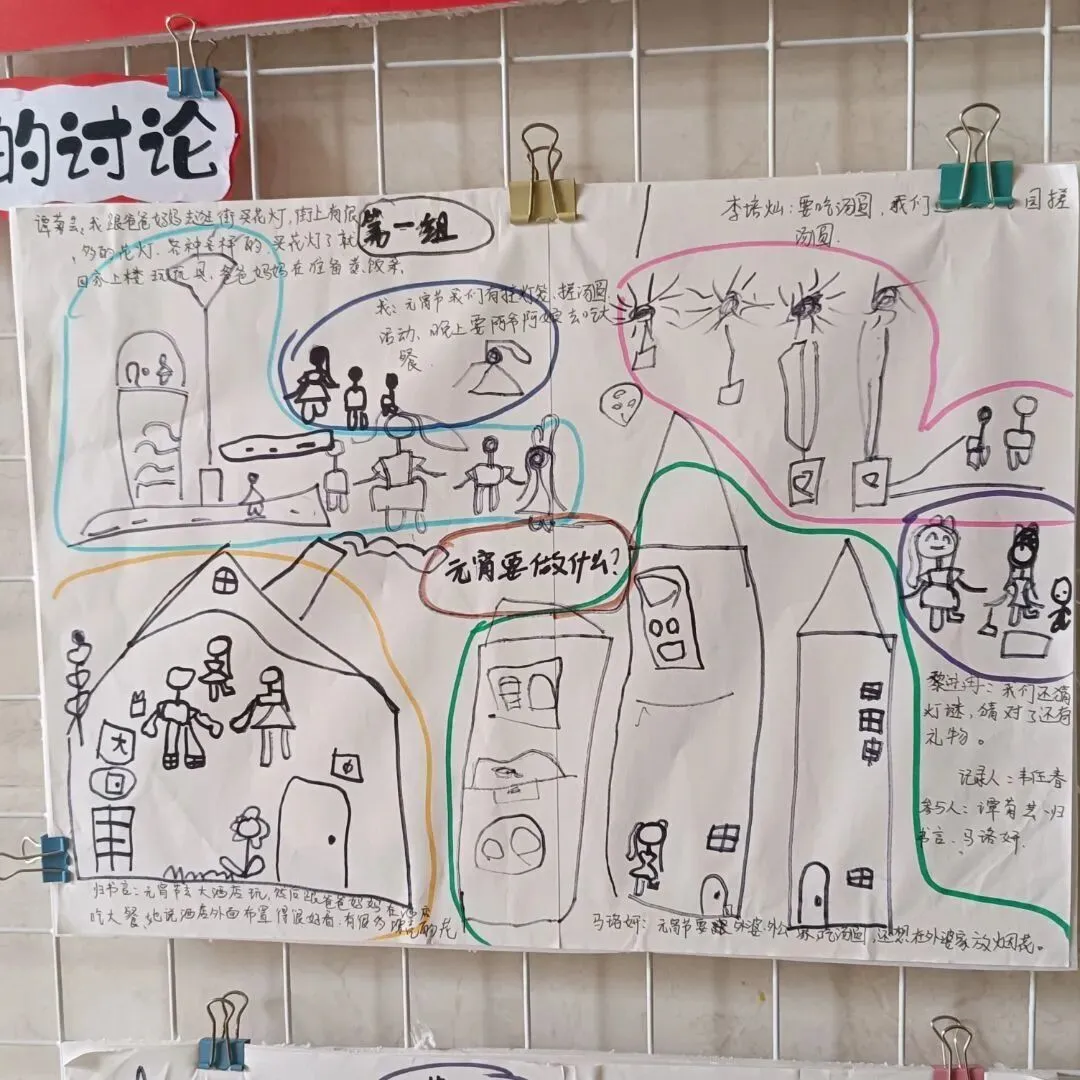 的讨论
谭菊芸:我跟爸爸妈妈去逛街买花灯,街上有很
多的花灯.各种各样的.买花灯了就
回家上楼玩玩具,爸爸妈妈在准备煮饭菜.
第一组
我:元宵节我们有挂灯笼、搓汤圆
活动、晚上要陪爷阿娘去吃大
餐.
李培灿:要吃汤圆,我们 园搓
汤圆.
元宵要做什么?
大
黎 :我们还猜
灯谜,猜对了还有
礼物。
记录人:韦伍春
参与人:谭菊芸、归
书言、马珞妍.
归书言:元宵节去大酒店玩,然后跟爸爸妈妈在酒店
吃大餐,他说酒店外面布置得很好看.有很多 的花
马珞妍:元宵节要跟外婆、外公 吃汤圆,还想在外婆家放烟花。